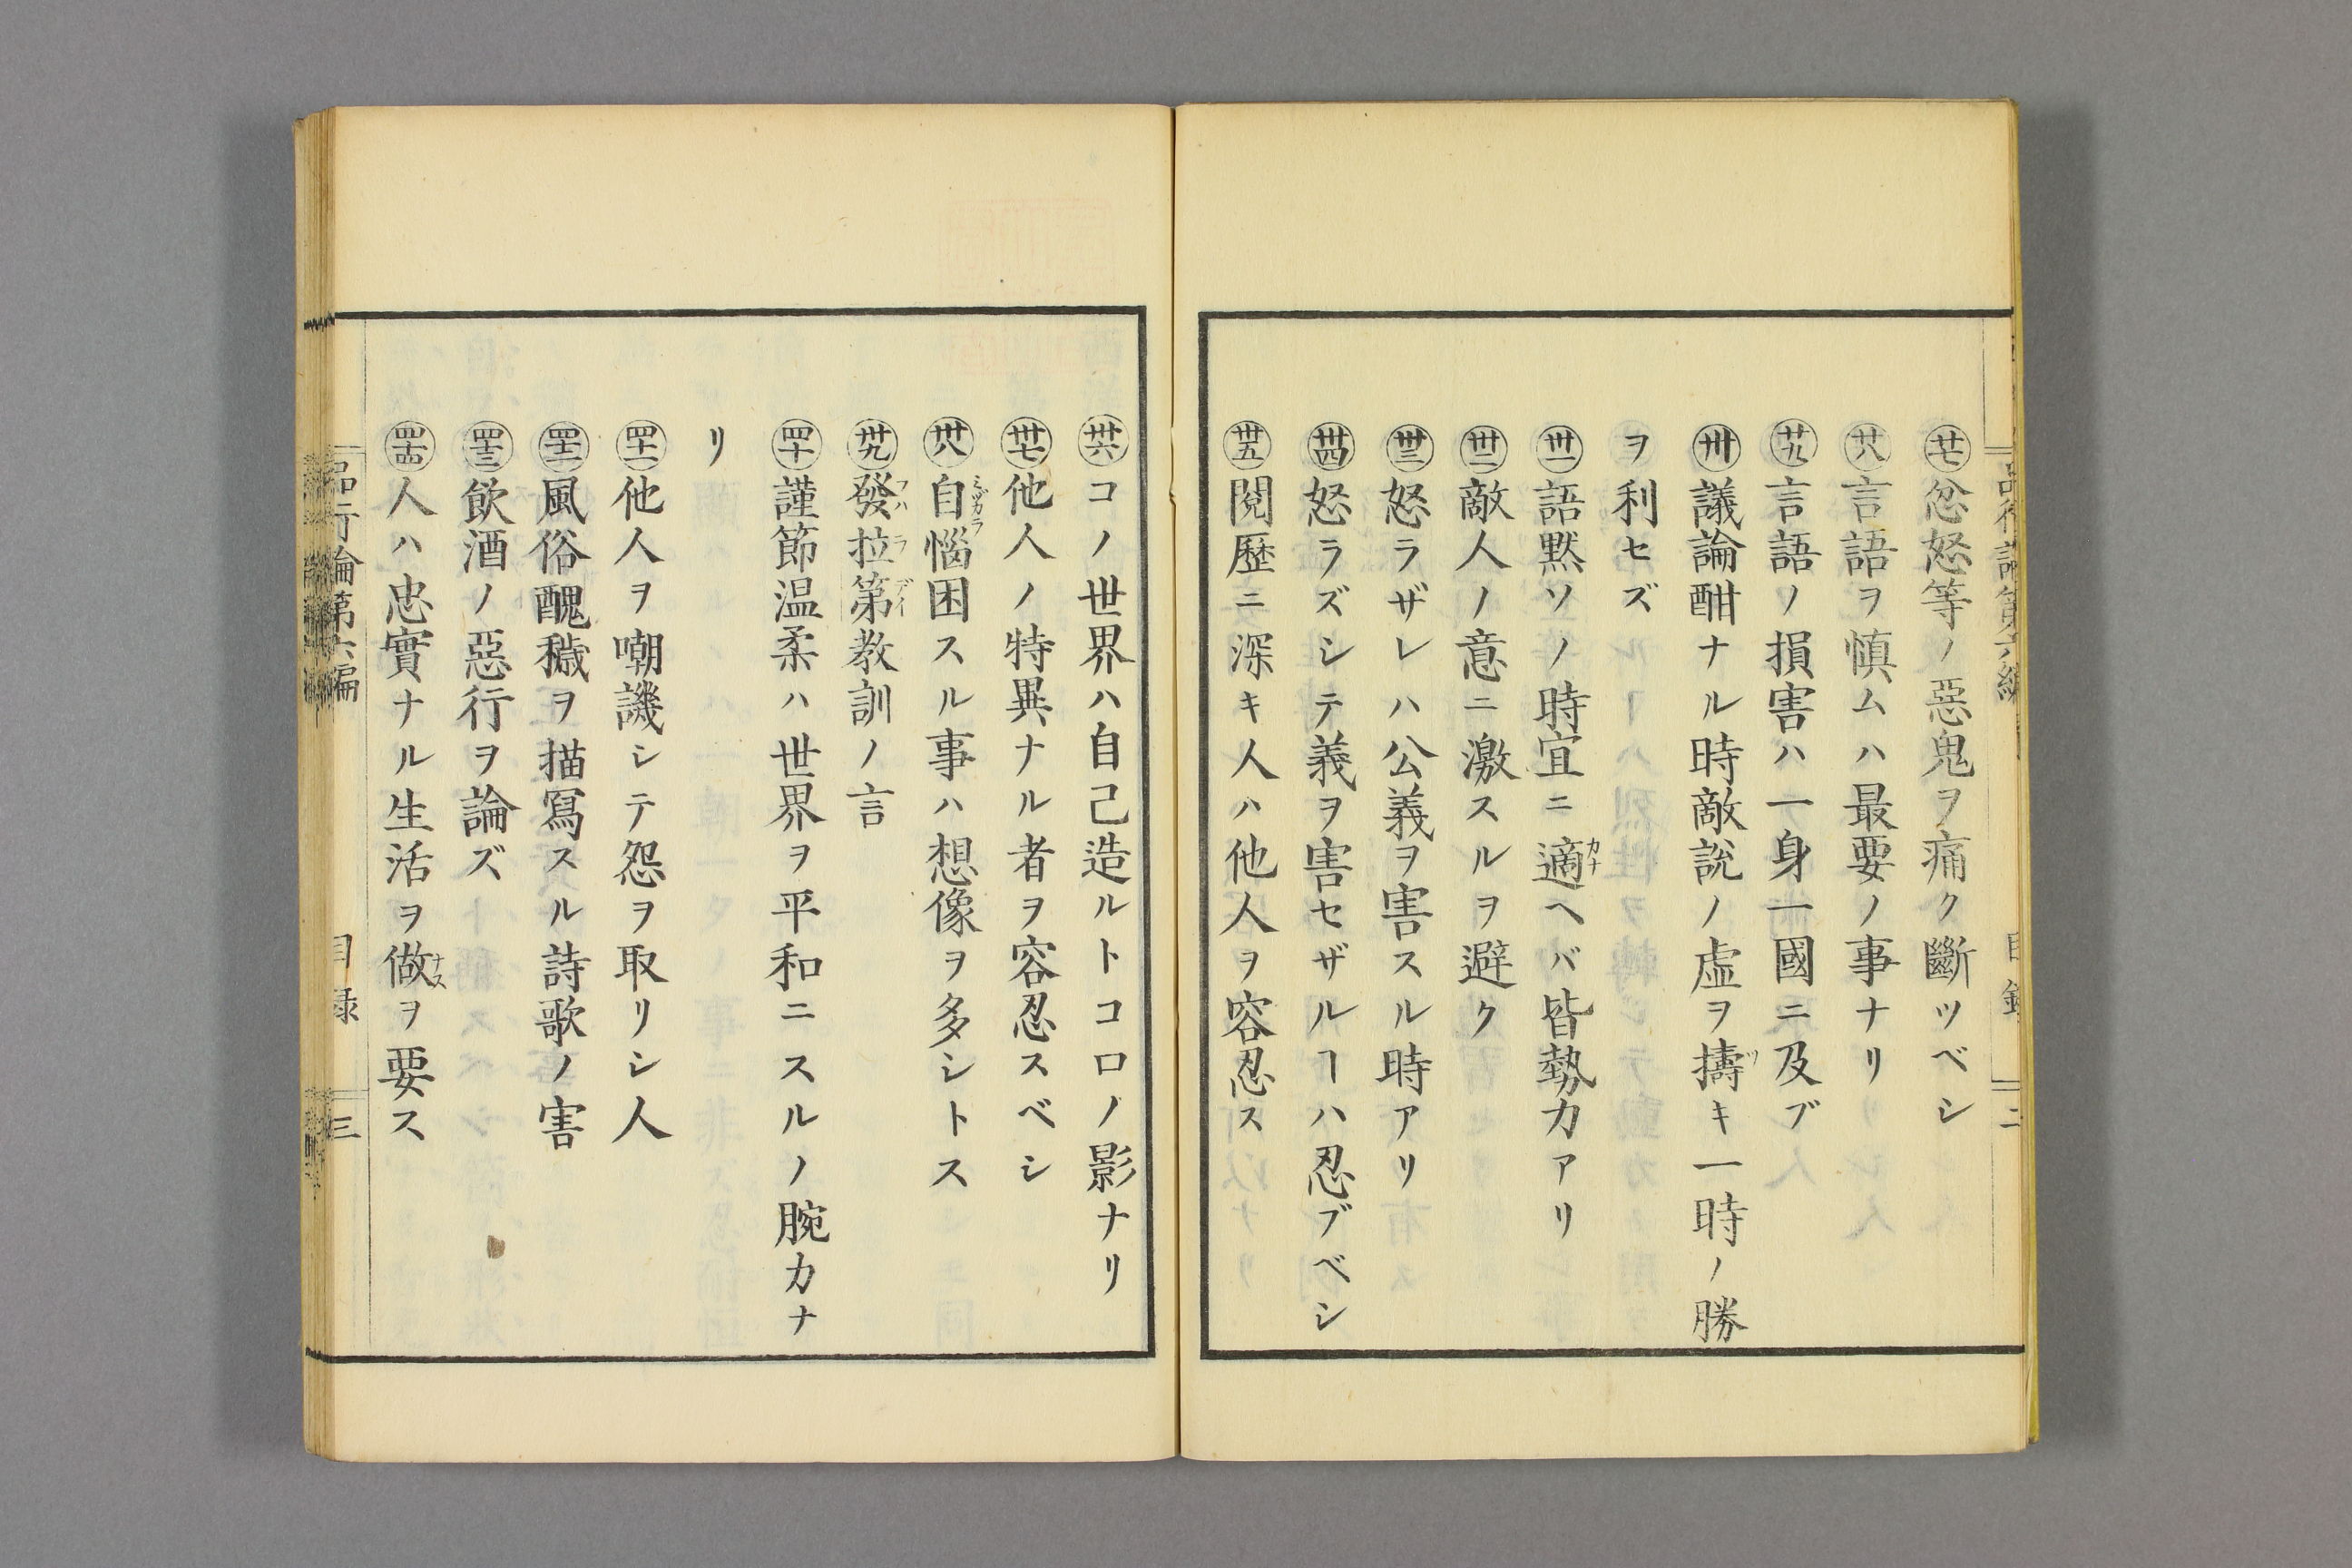 ㊁品行論第六編 目録 二
廿七 忿怒等ノ惡鬼ヲ痛ク斷ツベシ
廿八 言語ヲ愼ムハ最要ノ事ナリ
廿九 言語ノ損害ハ一身一國ニ及ブ
卅 議論酣ナル時敵說ノ虛ヲ擣キ一時ノ勝
ヲ利セズ
卅一 語默ソノ時宜ニ適ヘバ皆勢力アリ
卅二 敵人ノ意ニ激スルヲ避ク
卅三 怒ラザレハ公義ヲ害スル時アリ
卅四 怒ラズシテ義ヲ害セザルヿハ忍ブベシ
卅五 閱歷ニ深キ人ハ他人ヲ容忍ス
卅六 コノ世界ハ自己造ルトコロノ影ナリ
卅七 他人ノ特異ナル者ヲ容忍スベシ
卅八 自惱困スル事ハ想像ヲ多シトス
卅九 發拉第教訓ノ言
四十 謹節温柔ハ世界ヲ平和ニスルノ腕力ナ
リ
四十一 他人ヲ嘲譏シテ怨ヲ取リシ人
四十二 風俗醜穢ヲ描寫スル詩歌ノ害
四十三 飲酒ノ惡行ヲ論ズ
四十四 人ハ忠實ナル生活ヲ做ヲ要ス
品行論第六編 目録 三